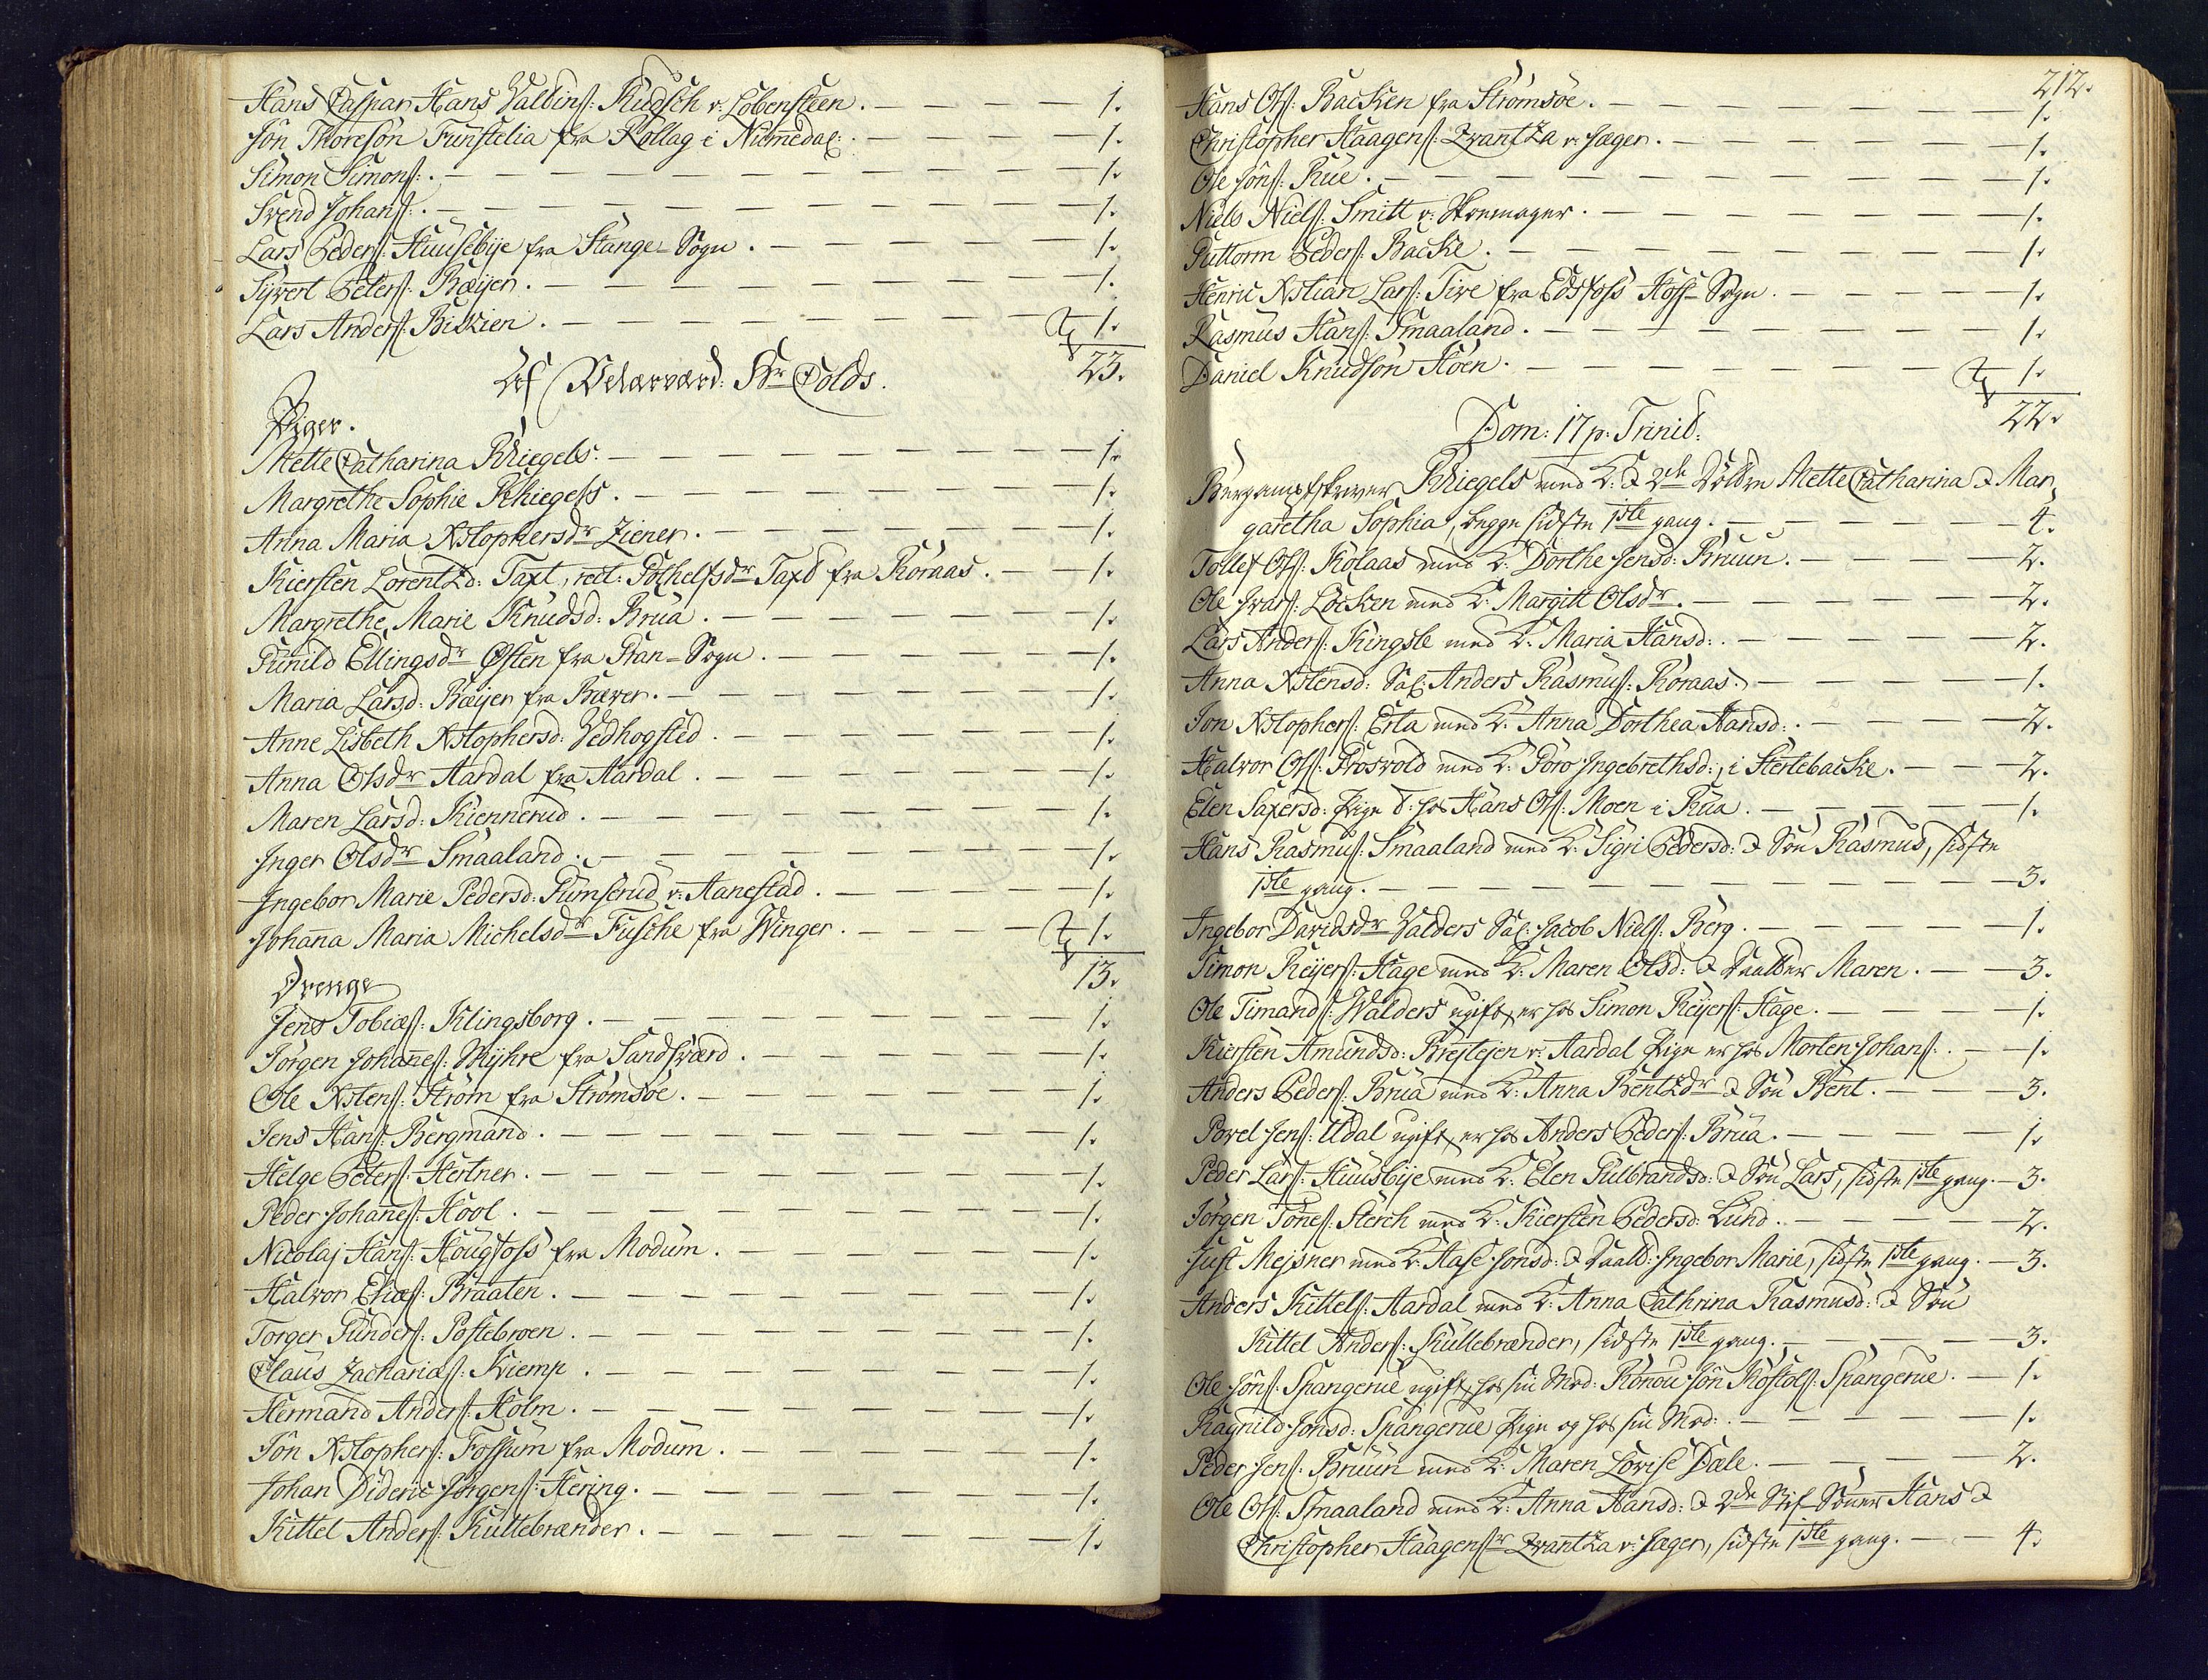 Hans Caspar Hans Valtins: Kudsch v: Lobensteen. 1.
Jon Thoresøn Funstelia fra Rollag i Numedal: 1.
Simon Simons: 1.
Svend Johans: 1.
Lars Peders: Huusebije fra Stange-Sogn. 1.
Sijvert Peters: Bæijer. 1.
Lars Anders: Biskien. 1.
23.
Af Hr Colds.
Piger.
Mette Catharina Khiegels. 1.
Margrethe Sophie Khiegels. 1.
Anna Maria Xstophersdr Ziener. 1.
Kiersten Lorentzd: Taxt, rect: Gothelfsdr Taxt fra Røraas. 1.
Margrethe Marie Knudsd: Brua. 1.
Gunild Ellingsdr Østen fra Gran-Sogn. 1.
Maria Larsd: Bæijer fra Bæver. 1.
Anne Lisbeth Xstophersd: Vedhogsted. 1.
Anna Olsdr Aardal fra Aardal. 1.
Maren Larsd: Kiennerud. 1.
Inger Olsdr Smaaland. 1.
Ingebor Marie Pedersd: Gumserud v: Aanestad. 1.
Johanna Maria Michelsdr Fusche fra Winger. 1.
13.
Drenge
Jens Tobiæs: Klingsborg. 1.
Jørgen Johannes: Myhre fra Sandsværd. 1.
Ole Xstens: Strøm fra Strømsøe. 1.
Jens Hans: Bergmand. 1.
Helge Peters: Hertner. 1.
Peder Johannes: Hool. 1.
Nicolaj Hans: Hougfoss fra Modum. 1.
Halvor Eliæs: Braaten. 1.
Torger Gunders: Postebroen. 1.
Claus Zacharias: Kiemp. 1.
Hermand Anders: Holm. 1.
Jon Xstophers: Fossum fra Modum. 1.
Johan Dideric Jørgens: Hering. 1.
Kittel Anders: Kullebrænder. 1.
212.
Hans Ols: Backen fra Strømsøe. 1.
Christopher Haagens: Zvantza v: Jæger. 1.
Ole Jons: Rue. 1.
Niels Niels: Smitt v: Skoemager. 1.
Guttorm Peders: Backe. 1.
Henric Xstian Lars: Tire fra Edsfoss Hoff-Sogn. 1.
Rasmus Hans: Smaaland. 1.
Daniel Knudsøn Hoen. 1.
22.
Dom: 17 p: Trinit:
Bergamptskriver Khiegels med K: & 2de Døttre Mette Catharina & Mar-
garetha Sophia, begge sidste 1ste gang. 4.
Tollef Ols: Kolaas med K: Dorthe Jensd: Bruun. 2.
Ole Ivars: Løcken med K: Margitt Olsdr. 2.
Lars Anders: Kingsle med K: Maria Hansd: 2.
Anna Xstensd: Sal: Anders Rasmus: Røraas. 1.
Jon Xstophers: Esta med K: Anna Dorthea Hansd: 2.
Halvor Ols: Frosvold med K: Goro Ingebrethsd:, i Hertebacke. 2.
Elen Saxersd: Pige t: hos Hans Ols: Moen i Rua. 1.
Hans Rasmus: Smaaland med K: Sigri Pedersd: & Søn Rasmus, sidste
1ste gang. 3.
Ingebor Davidsdr Valders Sal: Jacob Niels: Berg. 1.
Simon Reijers: Hage med K: Maren Olsd: & Daatter Maren. 3.
Ole Timands: Walders ugift, er hos Simon Reijers: Hage. 1.
Kiersten Amundsd: Brejlejen v: Aardal Pige er hos Morten Johans: 1.
Anders Peders: Brua med K: Anna Bentzdr & Søn Bent. 3.
Povel Jens: Udal ugift, er hos Anders Peders: Brua. 1.
Peder Lars: Huusbije med K: Elen Gulbrandsd: & Søn Lars, sidste 1ste gang. 3.
Jørgen Tønes: Sterch med K: Kiersten Pedersd: Lund. 2.
Just Mejsner med K: Aase Jonsd: & Daatt: Ingebor Marie, sidste 1ste gang. 3.
Anders Kittels: Aardal med K: Anna Cathrina Rasmusd: & Søn
Kittel Anders: Kullebrænder, sidste 1ste gang. 3.
Ole Jons: Spangerue ugift, hos sin Mod: Ronou Jon Kostols: Spangerue. 1.
Ragnild Jonsd: Spangerue Pige og hos sin Mod: 1.
Peder Jens: Bruun med K: Maren Lovise Dale. 2.
Ole Ols: Smaaland med K: Anna Hansd: & 2de Stif-Sønner Hans &
Christopher Haagensr Zvantza v: Jæger, sidste 1ste gang. 4.